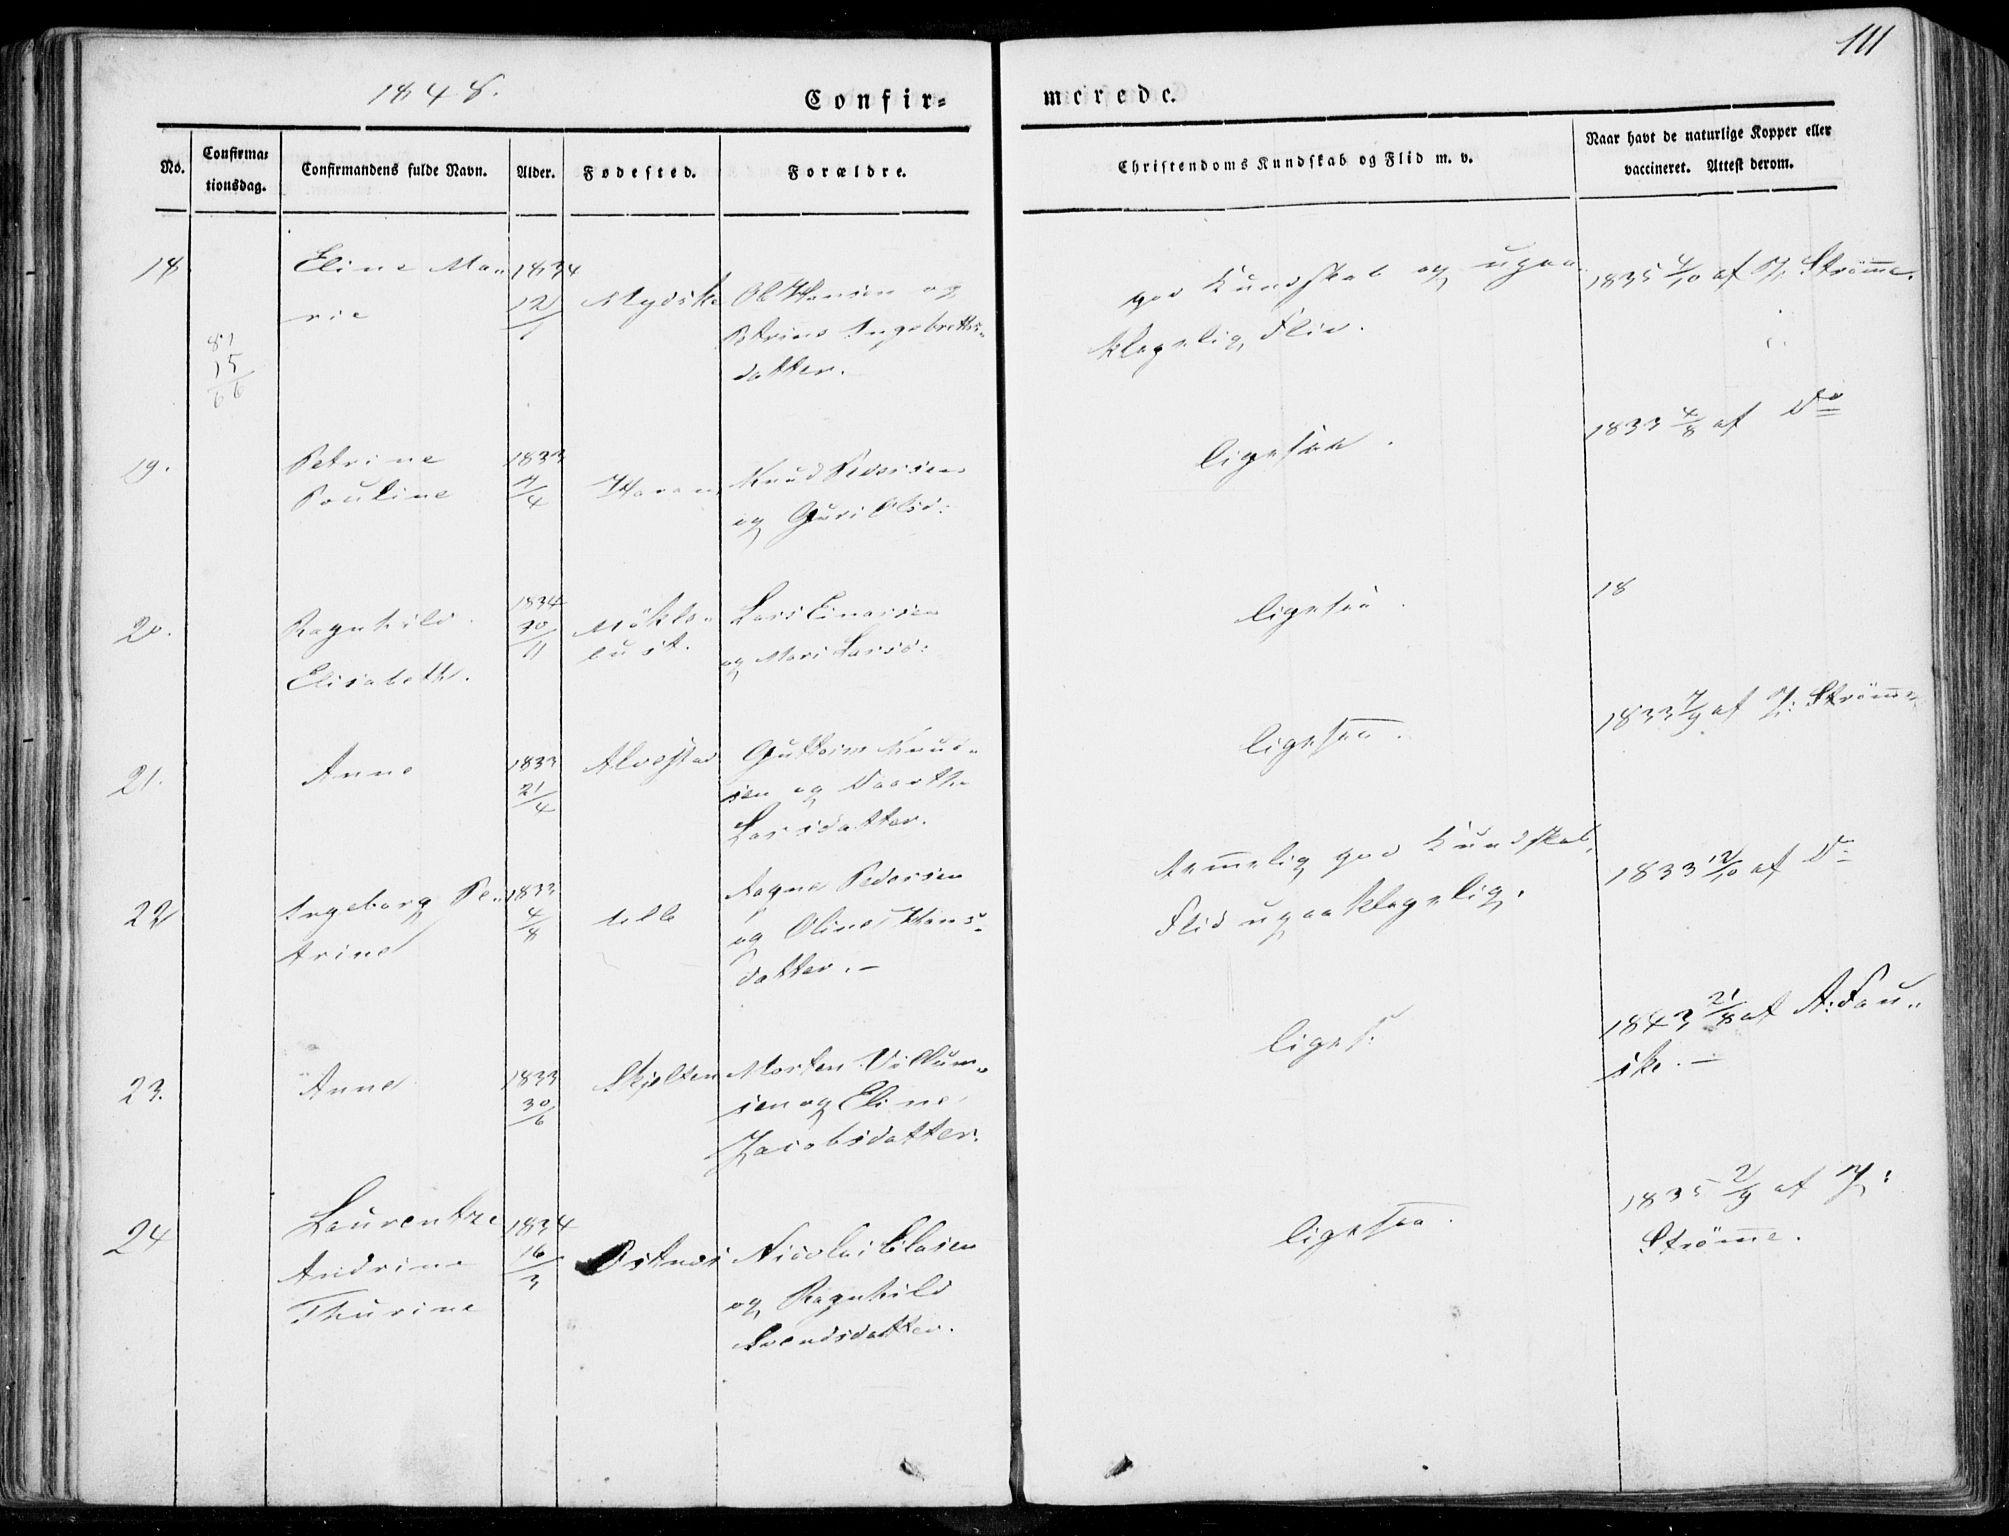 111
1848.
Confir=
merede.
No.
Confirma=
tionsdag.
Confirmandens fulde Navn.
Alder.
Fødested.
Forældre.
Christendoms Kundskab og Flid m. v.
Naar havt de naturlige Kopper eller
vaccineret. Attest derom.
18
Eline Ma-
rie
1834
12/1
Ole Hansen og
Petrine Ingebretts-
datter.
god Kundskab og upaa-
klagelig Flid.
1835 4/10 af P. Strømme.
15/6
19.
Petrine
Pouline
1833
Knud Pedersen
og Guri Olsd:
ligesaa.
1833 4/8 af Do
20.
Ragnhild
Elisabeth.
1834
Mökle-
bust.
Lars Einarsen
og Mari Larsd:
ligesaa.
18
21.
Anne
1833
21/4
Alvestad
Guttorm Knud-
sen og
Larsdatter.
ligesaa.
1833 7/9 af P: Strømme
22
Ingeborg Pe-
trine
1833
4/8
Aagne Pedersen
og Oline Hans-
datter. –
temmelig god Kundskab,
Flid upaaklagelig.
1833 12/10 af Do
23.
Anne
1833
30/6
Skjelten
Morten Villum-
sen og Eline
Jacobsdatter.
liges.
1843 21/8 af A: Fau-
ske. –
24
Laurentze
Andrine
Thurine
1834
16/3
Østnes
Nicolai Clasen
og Ragnhild
Svendsdatter.
ligesaa.
1835 2/9 af P:
Strømme.